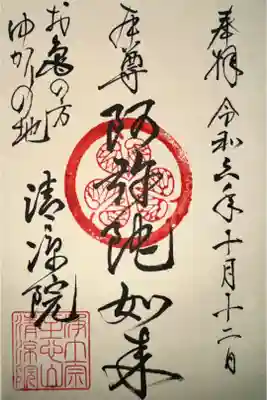 奉拝 令和六年十月十二日
本尊
阿弥陀如来
お亀の方
ゆかりの地
清凉院
浄土宗
清凉院